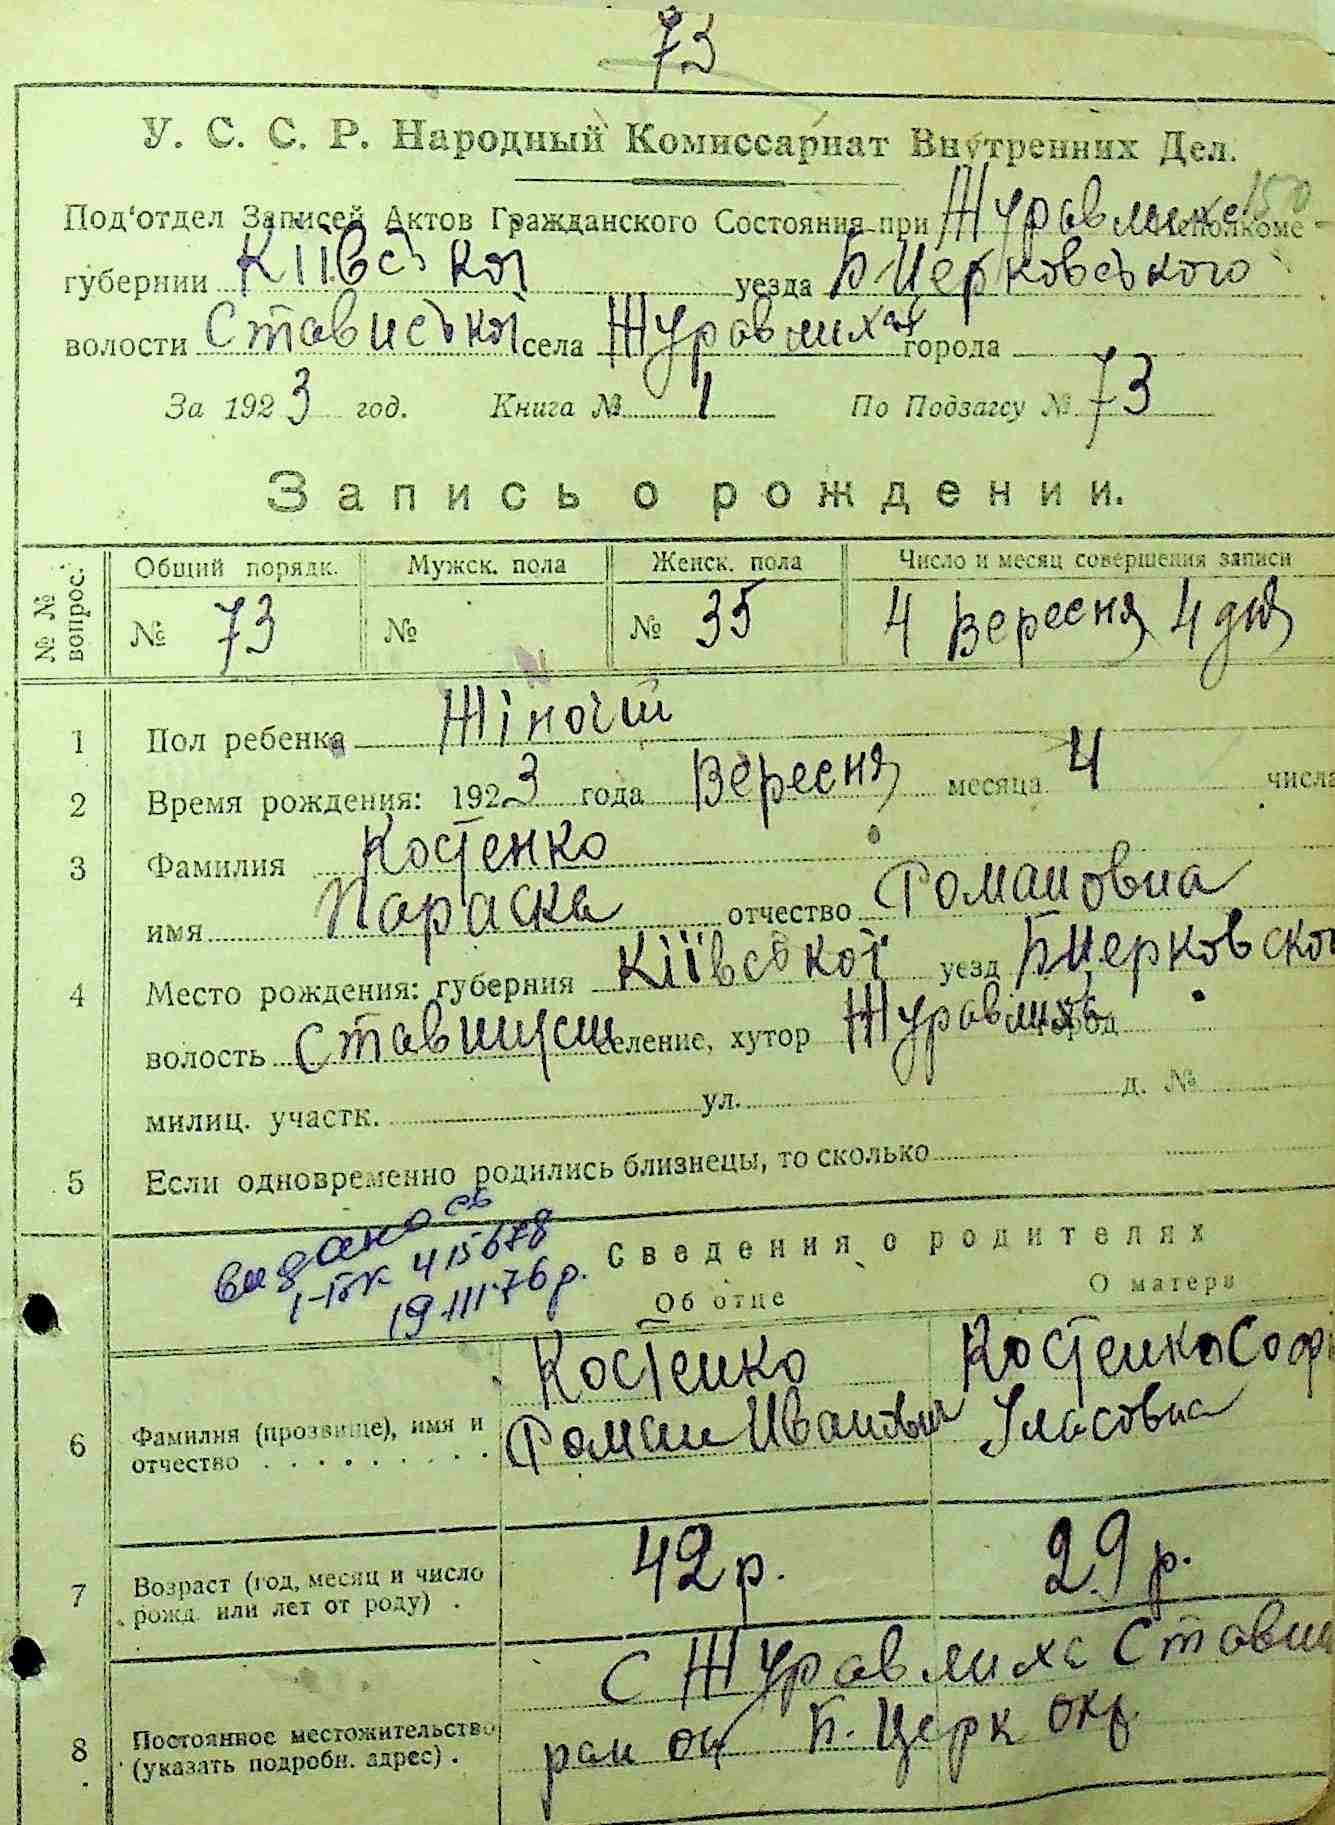 73
У. С. С. Р. Народный Комиссариат Внутренних Дел.
150
Под'отдел Записей Актов Гражданского Состояния при Журавлихе исполкоме
губернии Київської уезда Б Церковського
волости Стависької села Журавлиха города
За 1923 год. Книга № 1 По Подзагсу № 73
Запись о рождении.
№ № вопрос. Общий порядк. Мужск. пола Женск. пола Число и месяц совершения записи
№ 73 № № 35 4 Вересня 4 дня
1 Пол ребенка Жіночий
2 Время рождения: 1923 года Вересня месяца 4 числа
3 Фамилия Костенко
имя Параска отчество Романовна
4 Место рождения: губерния Київської уезд БЦерковског
волость Ставищ селение, хутор Журавлиха город
милиц. участк. ул. д. №
5 Если одновременно родились близнецы, то сколько
видано св
I-БК 415678
19.III.76р.
Сведения о родителях
Об отце О матери
6 Фамилия (прозвище), имя и отчество . . . . . . . . . Костенко Роман Иванович Костенко Софі Уласовна
7 Возраст (год, месяц и число рожд. или лет от роду) . 42 р. 29 р.
8 Постоянное местожительство (указать подробн. адрес) . С Журавлиха Ставищ
район Б. Церк окр.